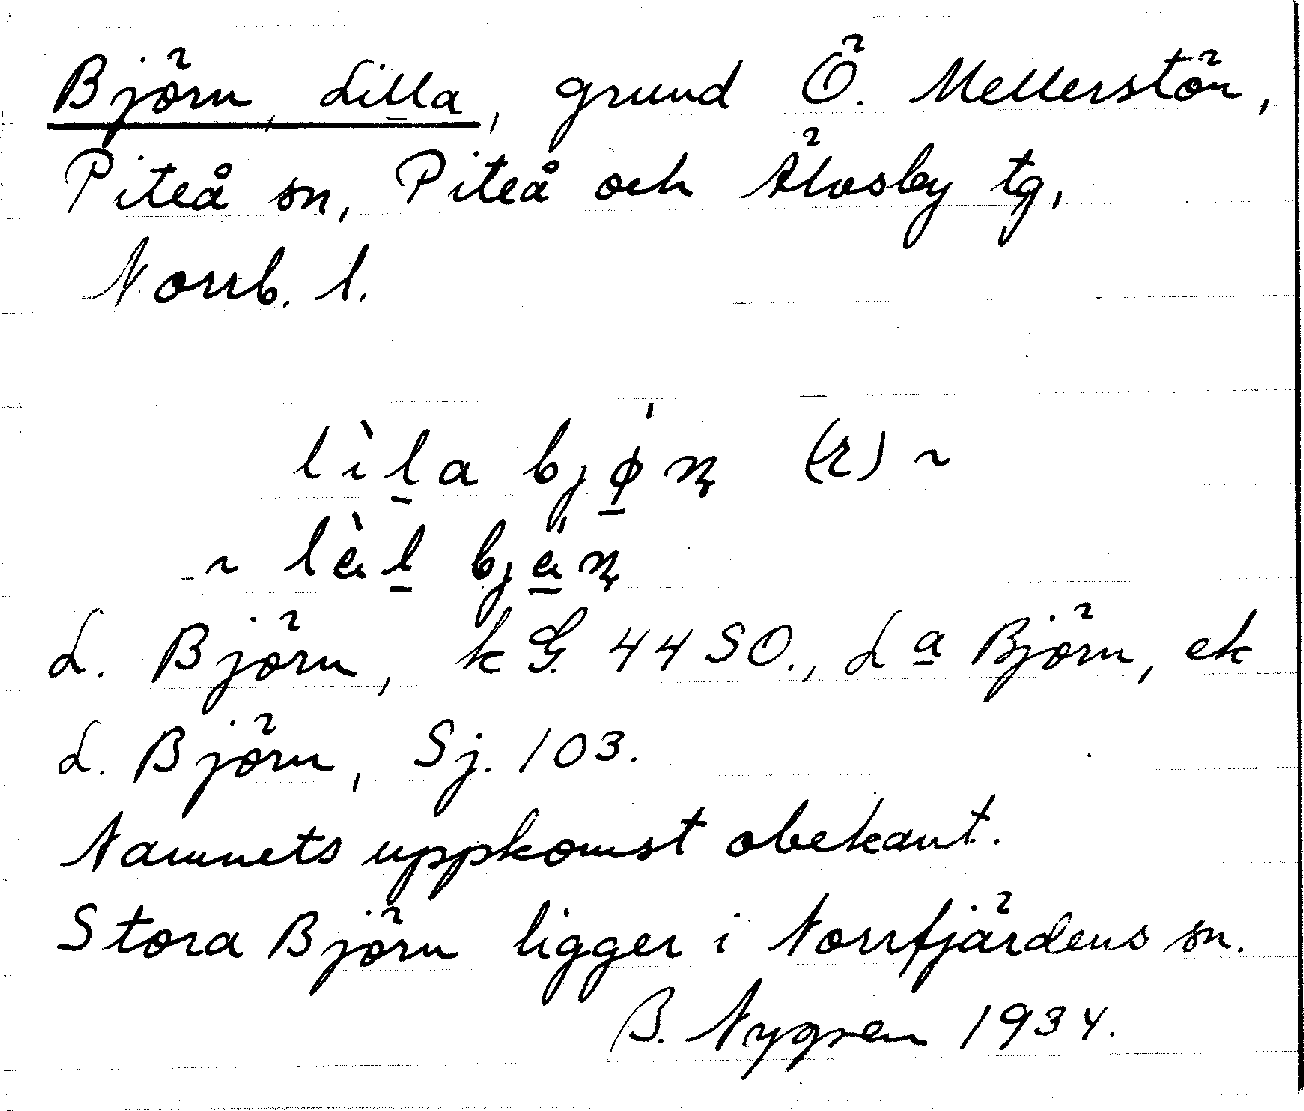 Björn, Lilla, grund Ö. Mellerstön,
Piteå sn, Piteå och Älvsby tg,
Norrb. l.
lìḻa bjǿ̱ɳ (r) ~
~ làḻ bjä̱ɳ
L. Björn, kG. 44 SO., L<u>a</u> Björn, ek
L. Björn, Sj. 103.
Namnets uppkomst obekant.
Stora Björn ligger i Norrfjärdens sn.
B. Nygren 1934.